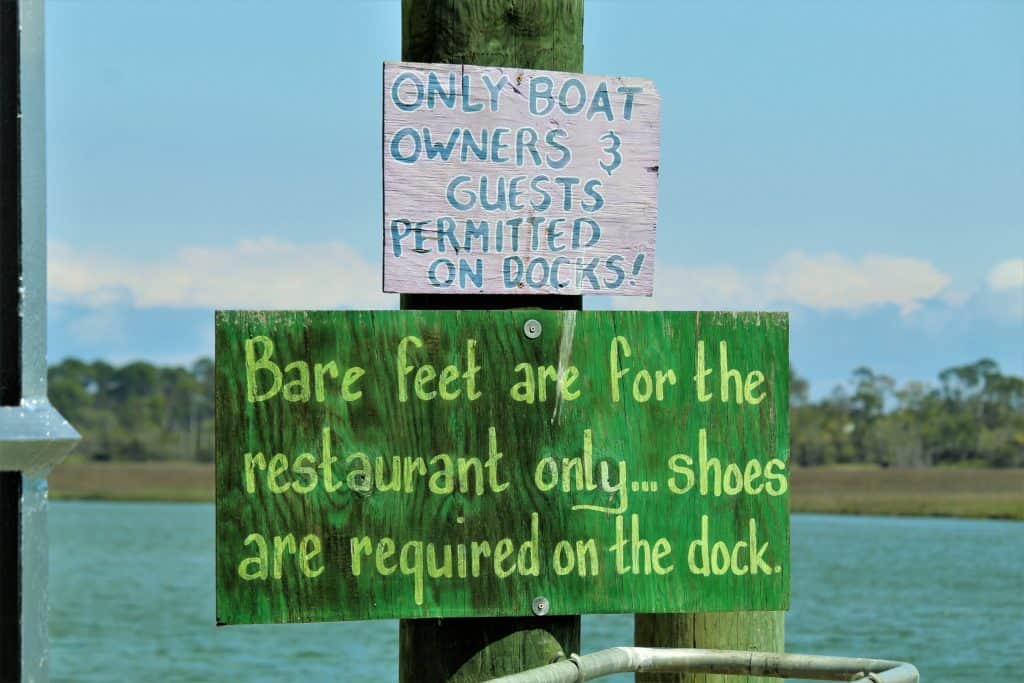 ONLY BOAT
OWNERS &
GUESTS
PERMITTED
ON DOCKS!
Bare feet are for the
restaurant only... shoes
are required on the dock.